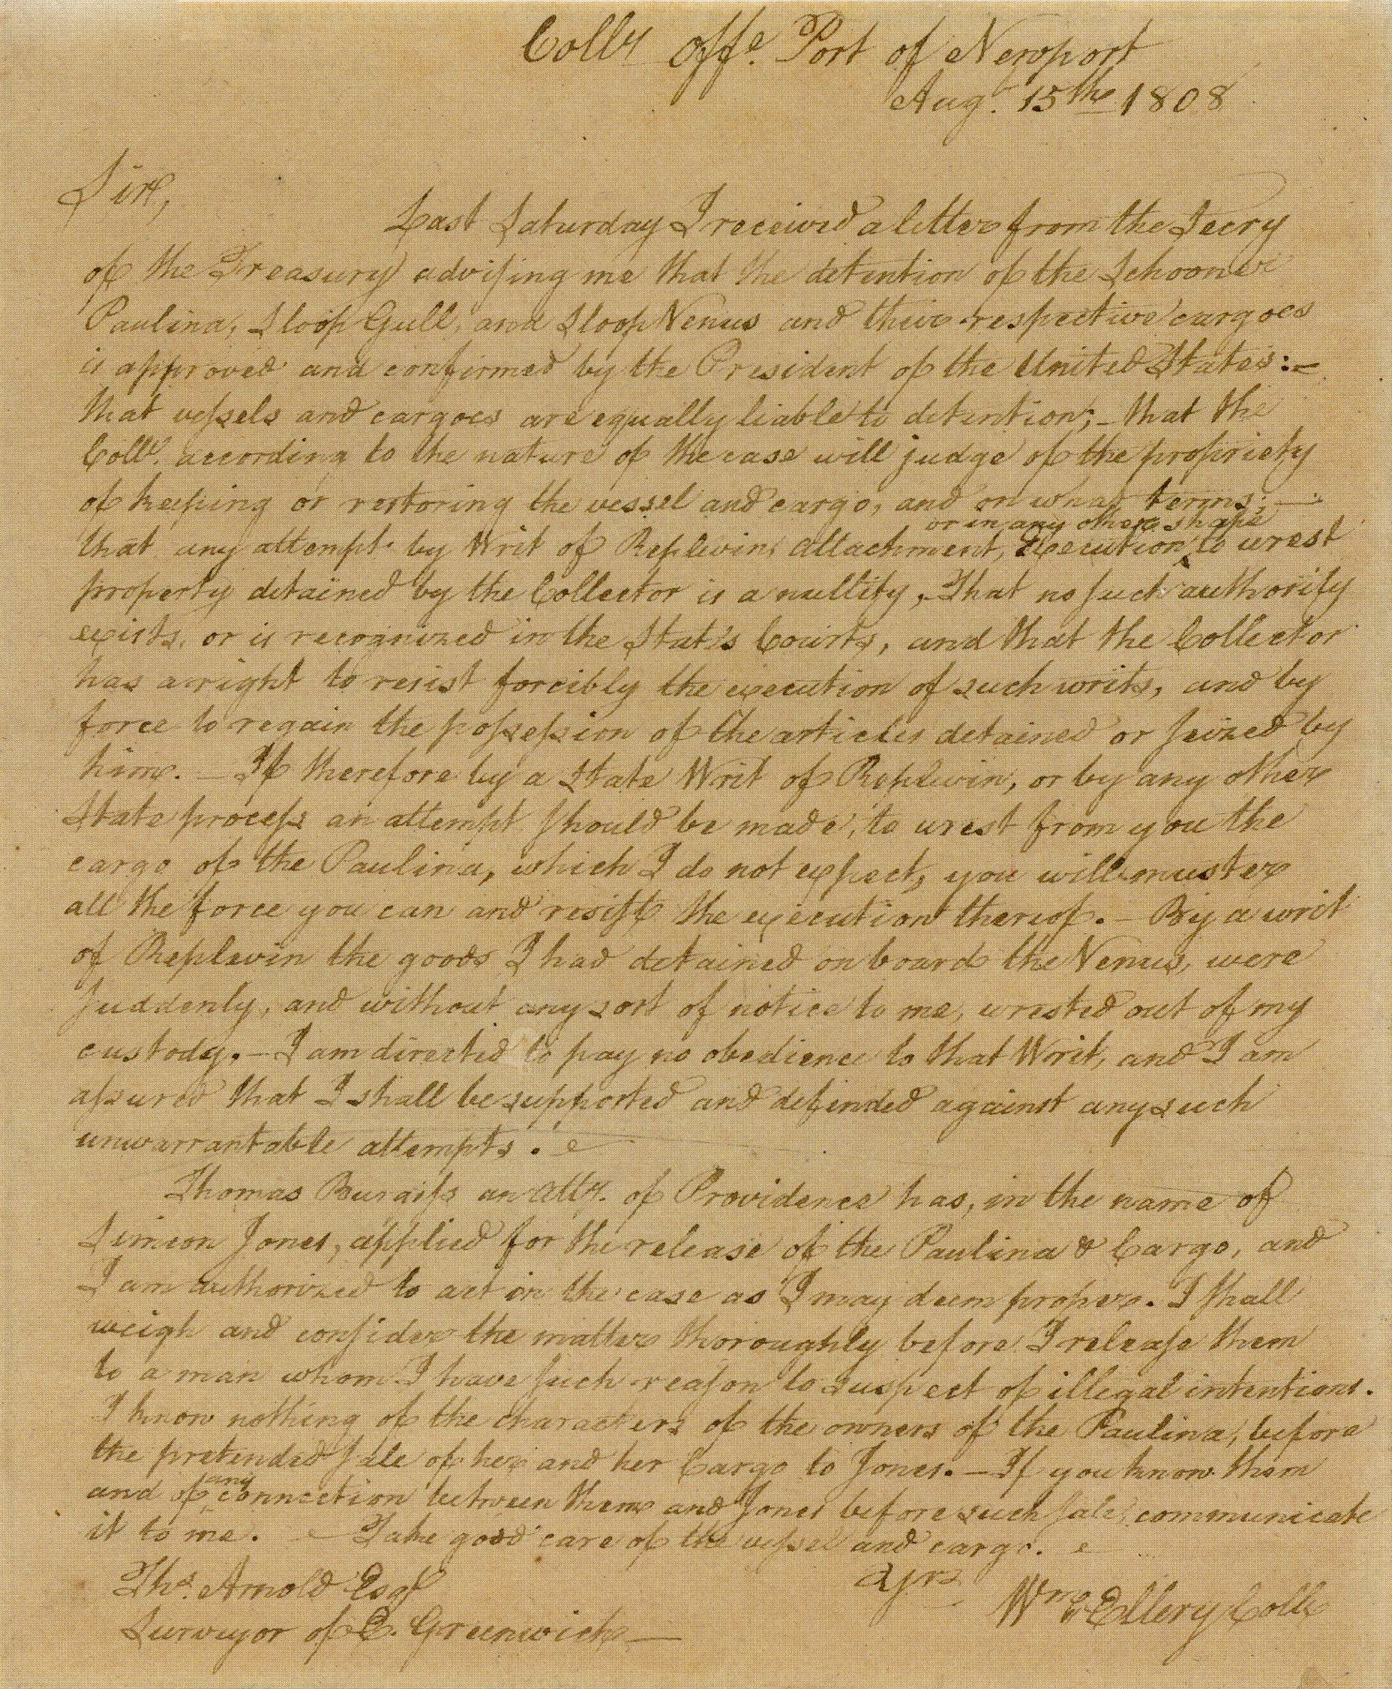 Collrs Offe. Port of Newport
Augt. 15th 1808
Sir,
Last Saturday I received a letter from the Secry
of the Treasury advising me that the detention of the Schooner
Paulina, Sloop Gull, and Sloop Venus and their respective cargoes
is approved and confirmed by the President of the United States:—
that vessels and cargoes are equally liable to detention; — that the
Collr. according to the nature of the case will judge of the propriety
of keeping or restoring the vessel and cargo, and on what terms; —:
or in any other shape
that any attempt by Writ of Replevin, attachment, execution ^ to wrest
property detained by the Collector is a nullity, That no such authority
exists, or is recognized in the State's Courts, and that the Collector
has a right to resist forcibly the execution of such writs, and by
force to regain the possession of the articles detained or seized by
him. — If therefore by a State Writ of Replevin, or by any other
State process an attempt should be made, to wrest from you the
cargo of the Paulina, which I do not expect, you will muster
all the force you can and resist the execution thereof. — By a writ
of Replevin the goods I had detained on board the Venus, were
suddenly, and without any sort of notice to me, wrested out of my
custody. — I am directed to pay no obedience to that Writ, and I am
assured that I shall be supported and defended against any such
unwarrantable attempts.
Thomas Burgiss an Atty. of Providence has, in the name of
Simeon Jones, applied for the release of the Paulina & Cargo, and
I am authorized to act in the case as I may deem proper. I shall
weigh and consider the matter thoroughly before I release them
to a man whom I have such reason to suspect of illegal intentions.
I know nothing of the characters of the owners of the Paulina, before
the pretended sale of her and her Cargo to Jones. — If you know them
any
and of ^ connection between them and Jones before such sale, communicate
it to me. Take good care of the vessel and cargo.
Yrs
Wm Ellery Collr
Ths. Arnold Esqr
Surveyor of E. Greenwich —